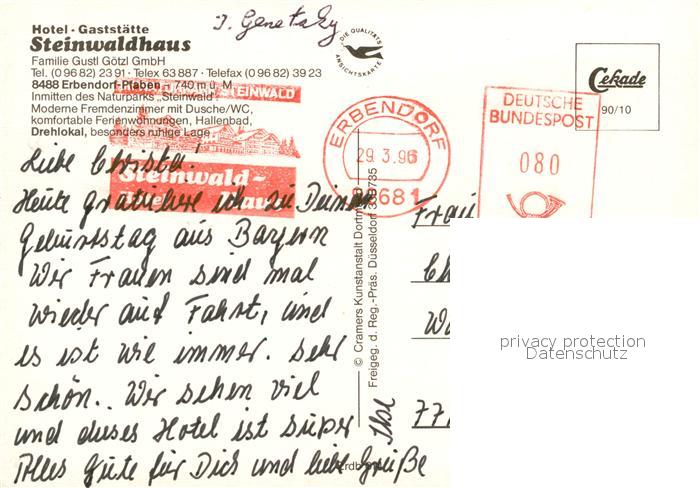 Hotel - Gaststätte
Steinwaldhaus
Familie Gustl Götzl GmbH
Tel. (0 96 82) 23 91 · Telex 63 887 · Telefax (0 96 82) 39 23
8488 Erbendorf-Pfaben · 740 m ü. M.
Inmitten des Naturparks „Steinwald“
Moderne Fremdenzimmer mit Dusche/WC,
komfortable Ferienwohnungen, Hallenbad,
Drehlokal, besonders ruhige Lage
DIE QUALITÄTS
ANSICHTSKARTE
Cekade
90/10
STEINWALD
Steinwald-
ERBENDORF
29.3.96
681
DEUTSCHE
BUNDESPOST
080
Liebe Christa!
Heute gratuliere ich zu Deinem
Geburtstag aus Bayern
Wir Frauen sind mal
wieder auf Fahrt, und
es ist wie immer. Sehr
schön. Wir sehen viel
und dieses Hotel ist super
Alles Gute für Dich und liebe Grüße
Ilse
© Cramers Kunstanstalt Dortm
Freigeg. d. Reg.-Präs. Düsseldorf 3 735
Frau
Ch
W
77
privacy protection
Datenschutz